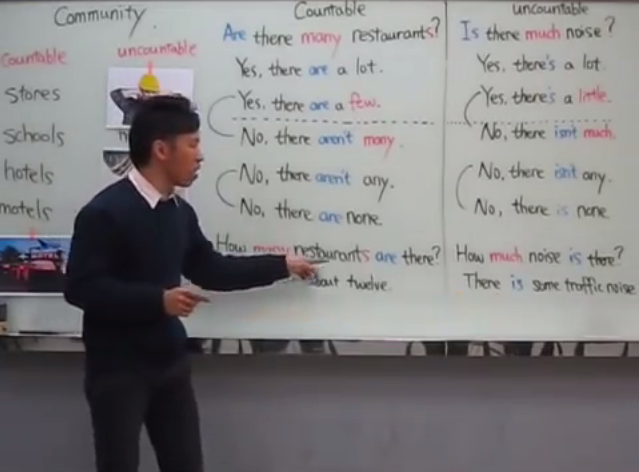 Community.
Countable
uncountable
Stores
schools
hotels
motels
Countable
Are there many restaurants?
Yes, there are a lot.
Yes, there are a few.
No, there aren't many.
No, there aren't any.
No, there are none.
How many restaurants are there?
about twelve.
uncountable
Is there much noise?
Yes, there's a lot.
Yes, there's a little.
No, there isn't much.
No, there isn't any.
No, there is none.
How much noise is there?
There is some traffic noise